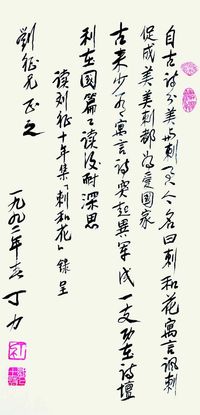 自古诗分美与刺 又今名曰刺和花寓言讽刺
促成美美刺都为爱国家
古来少有寓言诗突起异军成一支功在诗坛
利在国篇篇读后耐深思
读刘征十年集「刺和花」录呈
刘征兄正之
一九九二年 丁力